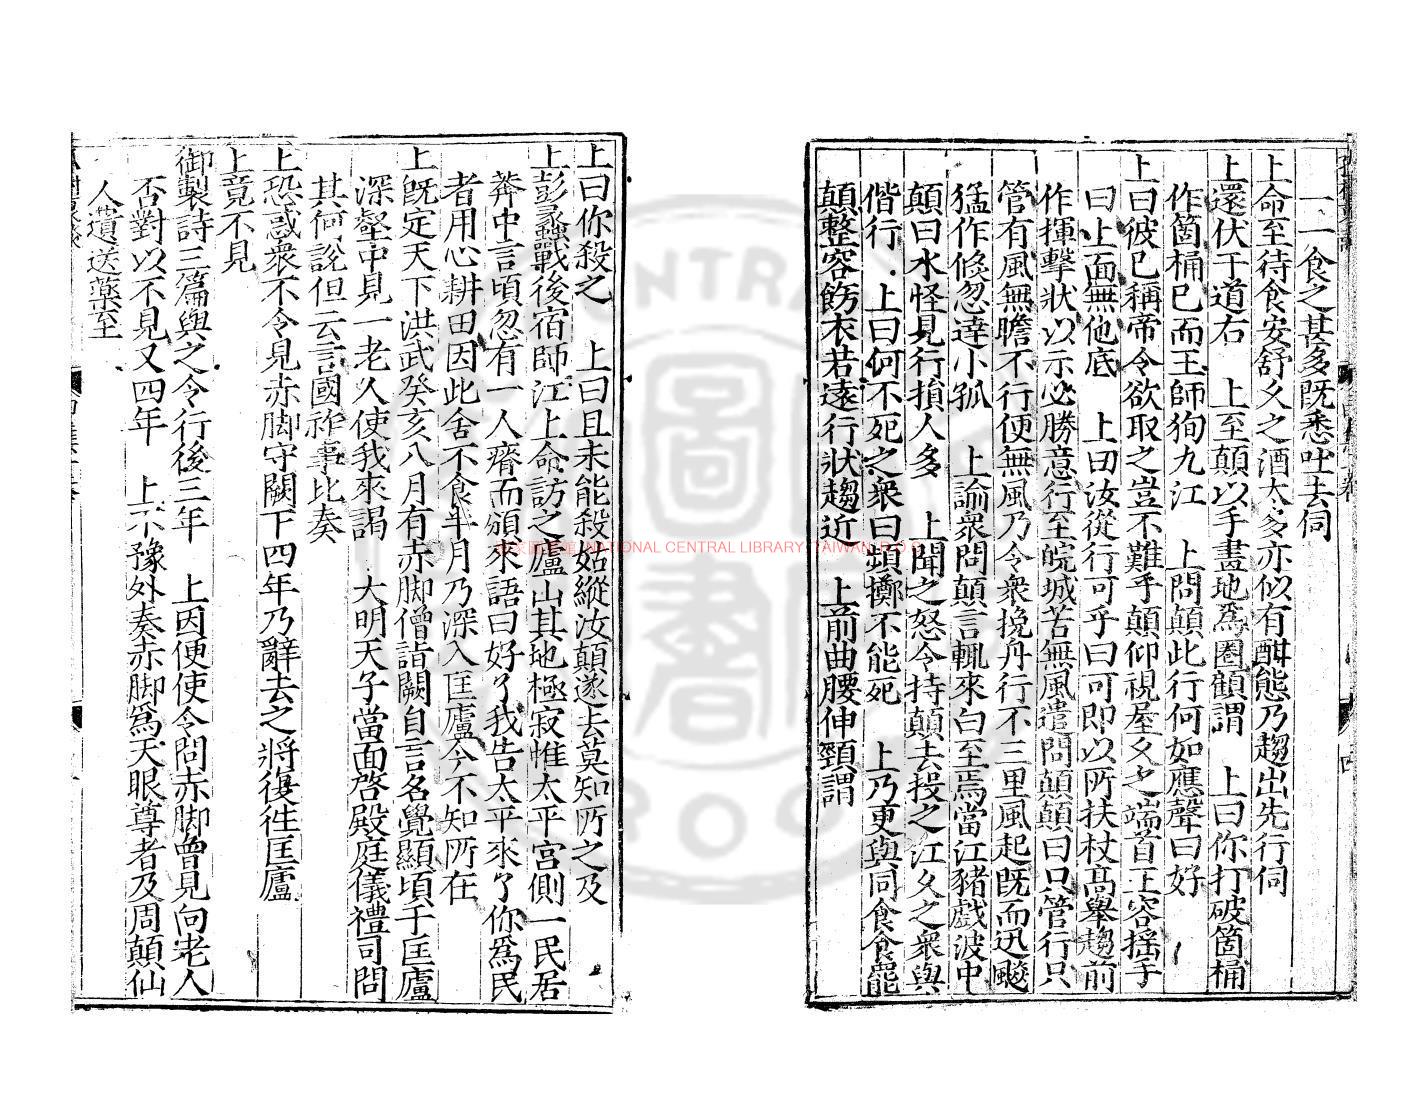 一一食之甚多既悉吐去伺
上命至待食安舒久之酒太多亦似有酣態乃趨出先行伺
上還伏于道右 上至顛以手畫地為圈顧謂 上曰你打破箇桶
作箇桶已而王師狥九江 上問顛此行何如應聲曰好
上曰彼已稱帝令欲取之豈不難乎顛仰視屋久之端首正容搖手
曰上面無他底 上曰汝從行可乎曰可即以所扶杖高舉趨前
作揮擊狀以示必勝意行至皖城苦無風遣問顛顛曰只管行只
管有風無膽不行便無風乃令衆挽舟行不三里風起既而迅颷
猛作倏忽達小孤 上諭衆問顛言輒來白至焉當江猪戲波中
顛曰水怪見行損人多 上聞之怒令持顛去投之江久之衆與
偕行 上曰何不死之衆曰頻擲不能死 上乃更與同食食罷
顛整容飭衣若遠行狀趨近 上前曲腰伸頸謂
上曰你殺之 上曰且未能殺姑縱汝顛遂去莫知所之及
上彭蠡戰後宿師江上命訪之廬山其地極寂惟太平宮側一民居
莽中言頃忽有一人瘠而頒來語曰好了我告太平來了你爲民
者用心耕田因此舍不食半月乃深入匡廬今不知所在
上旣定天下洪武癸亥八月有赤脚僧詣闕自言名覺顯頃于匡廬
深壑中見一老人使我來謁 大明天子當面啓殿庭儀禮司問
其何說但云言國祚事比奏
上恐惑衆不令見赤脚守闕下四年乃辭去之將復徃匡廬
上竟不見
御製詩三篇與之令行後三年 上因便使令問赤脚曾見向老人
否對以不見又四年 上不豫外奏赤脚爲天眼尊者及周顛仙
人遺送藥至
國家圖書館 NATIONAL CENTRAL LIBRARY, TAIWAN, R.O.C